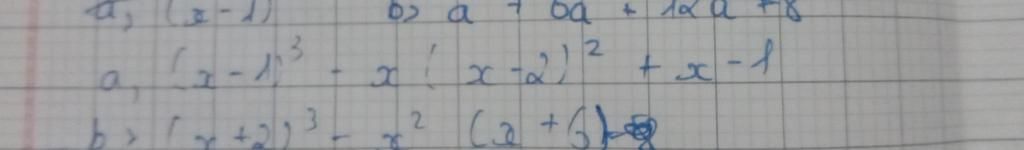 a, (x - 1) b> a + 6a + 12a + 8
a, (x - 1)³ - x(x - 2)² + x - 1
b> (x + 2)³ - x² (x + 6)